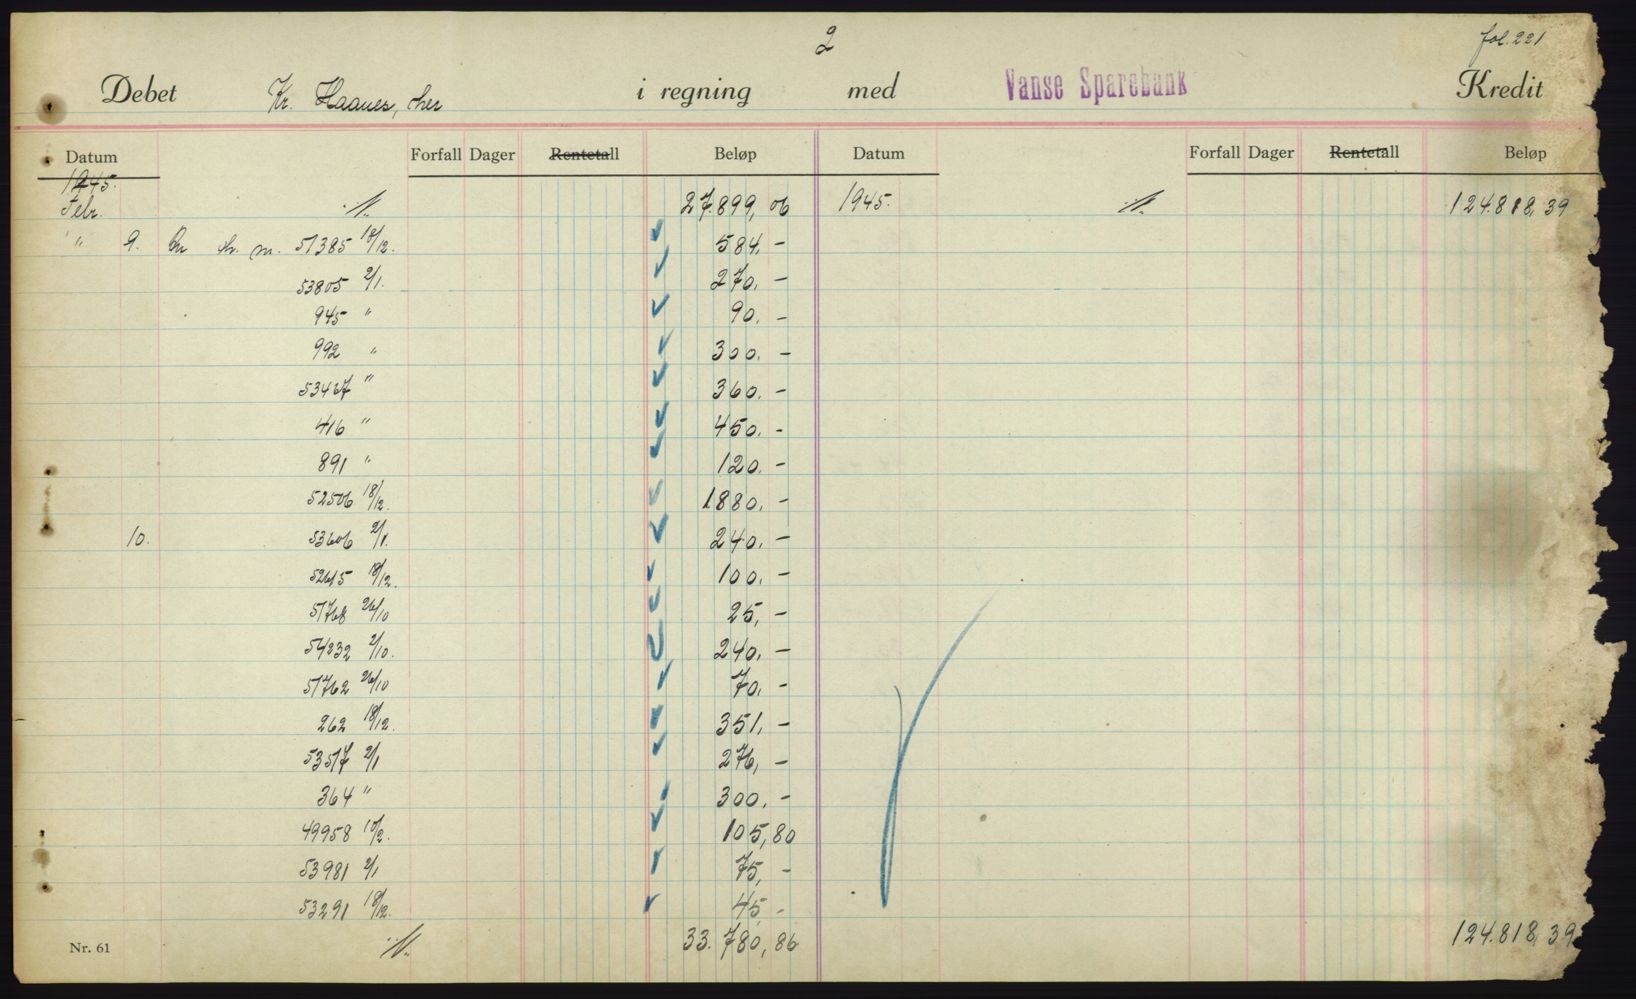 2
fol. 221
Debet Kr. Haanes, her i regning med Vanse Sparebank Kredit
Datum Forfall Dager Rentetall Beløp Datum Forfall Dager Rentetall Beløp
1945.
Febr. 27.899,06 1945. 124.818,39
" 9. 51385 18/12. 584,-
53805 2/1. 270,-
945 " 90.-
992 " 300.-
53467 " 360.-
416 " 450.-
891 " 120.-
52506 18/12. 1880,-
10. 53606 2/1. 240,-
52615 18/12. 100,-
51768 26/10 25,-
54232 2/10. 240,-
51762 26/10 70,-
262 18/12. 351,-
53517 2/1 276,-
364 " 300,-
49958 10/2. 105,80
53981 2/1 75,-
53291 18/12. 45,-
Nr. 61 33.780,86 124.818,39